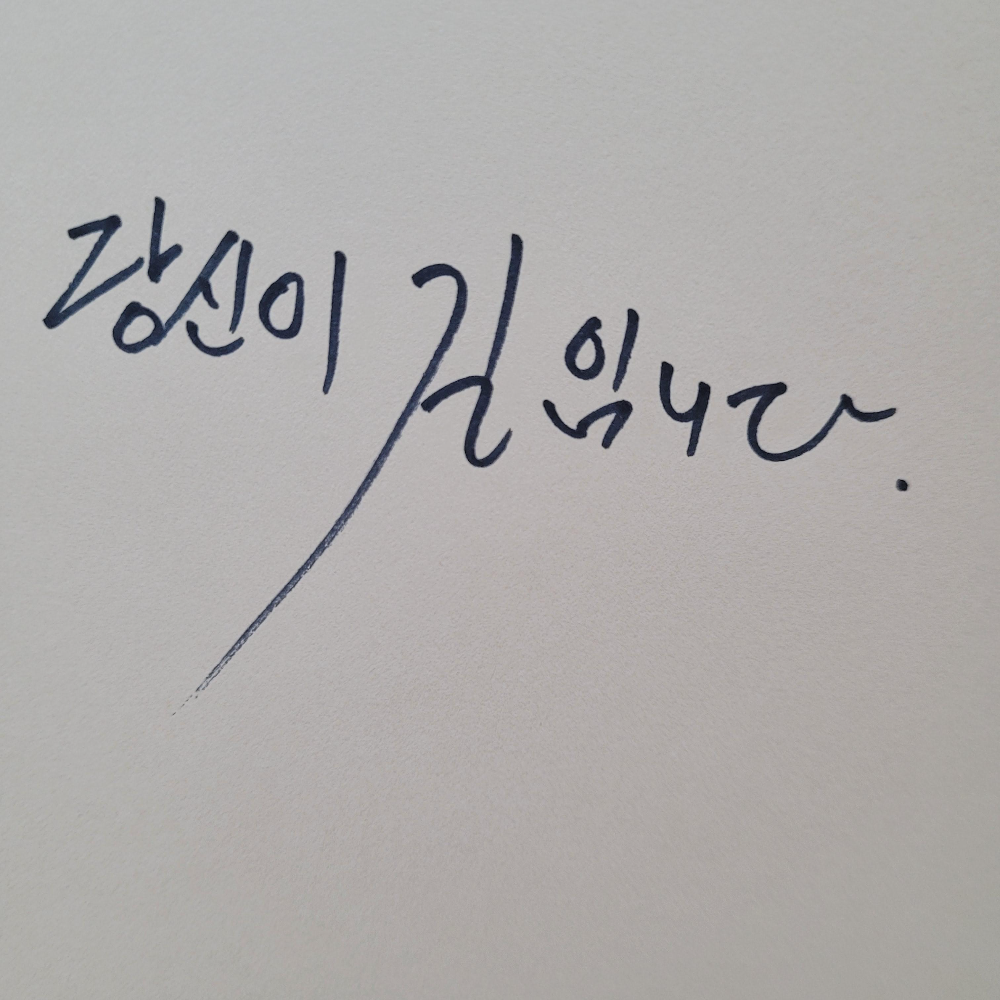 당신이 길입니다.